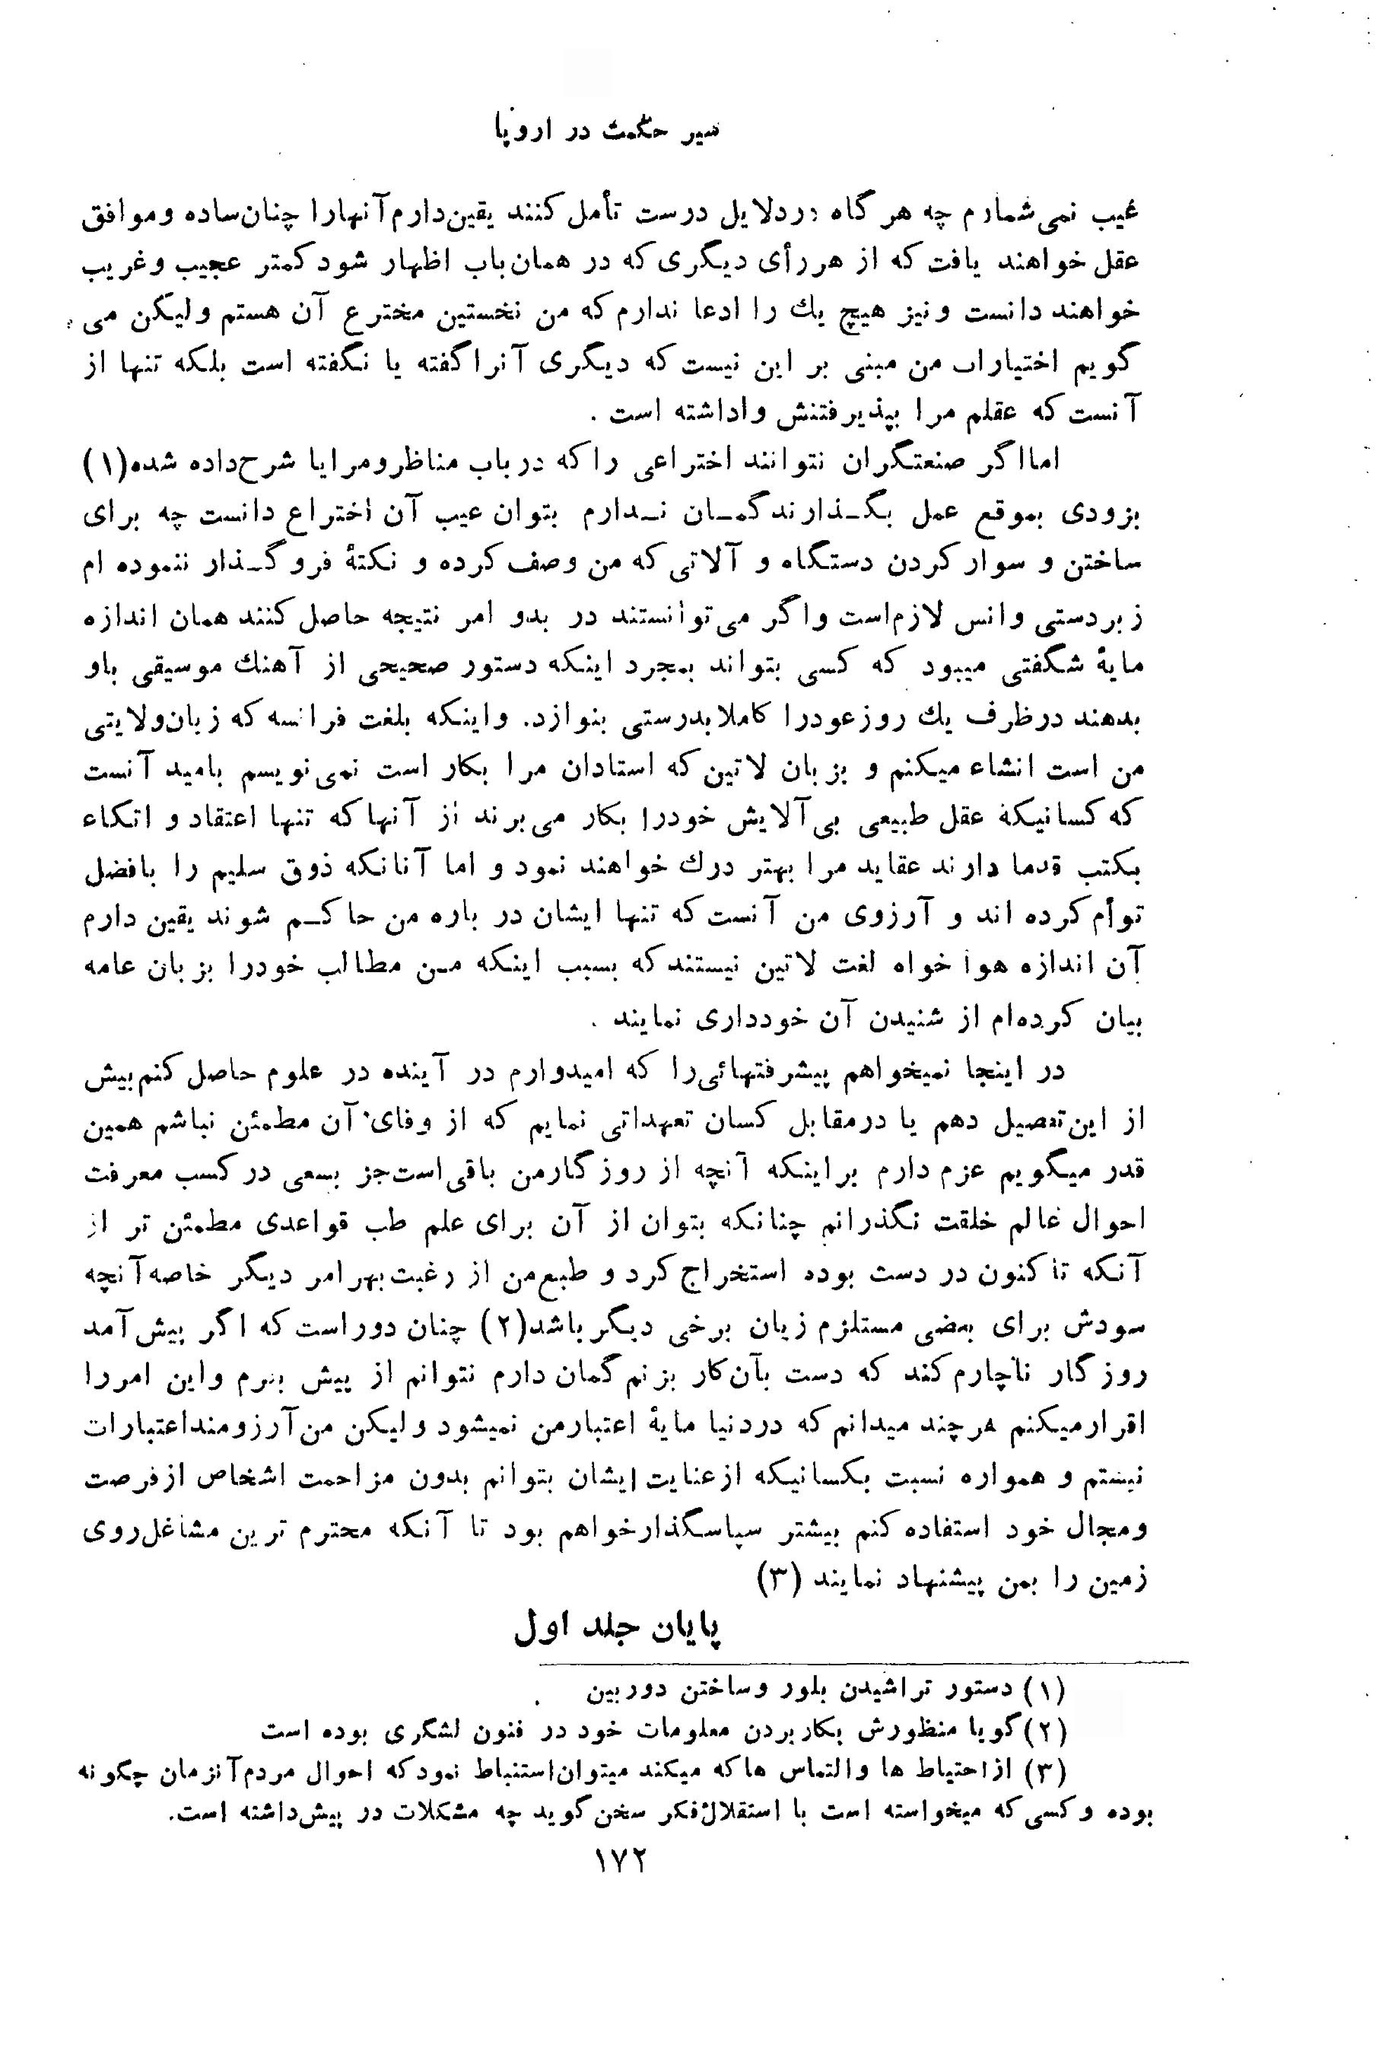 سیر حکمت در اروپا
عیب نمی‌شمارم چه هرگاه در دلایل درست تأمل کنند یقین دارم آنهارا چنان ساده و موافق
عقل خواهند یافت که از هر رأی دیگری که در همان باب اظهار شود کمتر عجیب و غریب
خواهند دانست و نیز هیچ یك را ادعا ندارم که من نخستین مخترع آن هستم ولیکن می
گویم اختیارات من مبنی بر این نیست که دیگری آنرا گفته یا نگفته است بلکه تنها از
آنست که عقلم مرا بپذیرفتنش واداشته است .
اما اگر صنعتگران نتوانند اختراعی را که در باب مناظر و مرایا شرح داده شده (۱)
بزودی بموقع عمل بگـذارند گمـان نـدارم بتوان عیب آن اختراع دانست چه برای
ساختن و سوار کردن دستگاه و آلاتی که من وصف کرده و نکتهٔ فروگـذار ننموده ام
زبردستی و انس لازم است و اگر می‌توانستند در بدو امر نتیجه حاصل کنند همان اندازه
مایهٔ شگفتی میبود که کسی بتواند بمجرد اینکه دستور صحیحی از آهنك موسیقی باو
بدهند در ظرف یك روز عود را کاملا بدرستی بنوازد. و اینکه بلغت فرانسه که زبان ولایتی
من است انشاء میکنم و بزبان لاتین که استادان مرا بکار است نمی‌نویسم بامید آنست
که کسانیکه عقل طبیعی بی‌آلایش خودرا بکار می‌برند از آنها که تنها اعتقاد و اتکاء
بکتب قدما دارند عقاید مرا بهتر درك خواهند نمود و اما آنانکه ذوق سلیم را بافضل
توأم کرده اند و آرزوی من آنست که تنها ایشان در باره من حاکـم شوند یقین دارم
آن اندازه هوا خواه لغت لاتین نیستند که بسبب اینکه مـن مطالب خودرا بزبان عامه
بیان کرده‌ام از شنیدن آن خودداری نمایند .
در اینجا نمیخواهم پیشرفتهائی را که امیدوارم در آینده در علوم حاصل کنم بیش
از این تفصیل دهم یا در مقابل کسان تعهداتی نمایم که از وفای آن مطمئن نباشم همین
قدر میگویم عزم دارم بر اینکه آنچه از روزگار من باقی است جز بسعی در کسب معرفت
احوال عالم خلقت نگذرانم چنانکه بتوان از آن برای علم طب قواعدی مطمئن تر از
آنکه تا کنون در دست بوده استخراج کرد و طبع من از رغبت بهر امر دیگر خاصه آنچه
سودش برای بعضی مستلزم زیان برخی دیگر باشد (۲) چنان دور است که اگر پیش آمد
روزگار ناچارم کند که دست بآن کار بزنم گمان دارم نتوانم از پیش ببرم و این امر را
اقرار میکنم هر چند میدانم که در دنیا مایهٔ اعتبار من نمیشود ولیکن من آرزومند اعتبارات
نیستم و همواره نسبت بکسانیکه از عنایت ایشان بتوانم بدون مزاحمت اشخاص از فرصت
و مجال خود استفاده کنم بیشتر سپاسگذار خواهم بود تا آنکه محترم ترین مشاغل روی
زمین را بمن پیشنهاد نمایند (۳)
پایان جلد اول
(۱) دستور تراشیدن بلور و ساختن دوربین
(۲) گویا منظورش بکار بردن معلومات خود در فنون لشگری بوده است
(۳) از احتیاط ها و التماس ها که میکند میتوان استنباط نمود که احوال مردم آنزمان چگونه
بوده و کسی که میخواسته است با استقلال فکر سخن گوید چه مشکلات در پیش داشته است.
۱۷۲